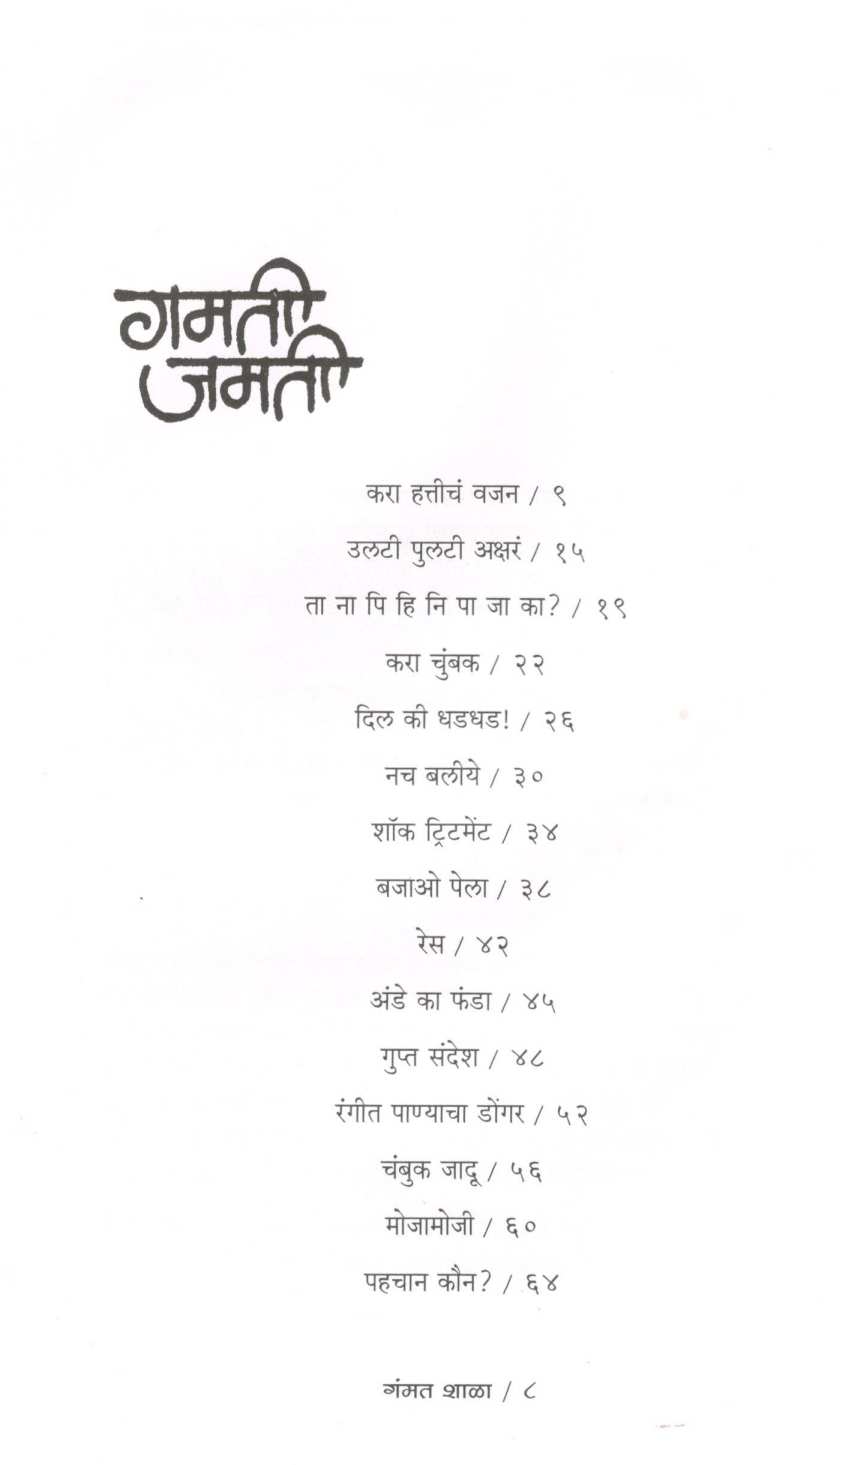 गमती
जमती
करा हत्तीचं वजन / ९
उलटी पुलटी अक्षरं / १५
ता ना पि हि नि पा जा का? / १९
करा चुंबक / २२
दिल की धडधड! / २६
नच बलीये / ३०
शॉक ट्रिटमेंट / ३४
बजाओ पेला / ३८
रेस / ४२
अंडे का फंडा / ४५
गुप्त संदेश / ४८
रंगीत पाण्याचा डोंगर / ५२
चंबुक जादू / ५६
मोजामोजी / ६०
पहचान कौन? / ६४
गंमत शाळा / ८